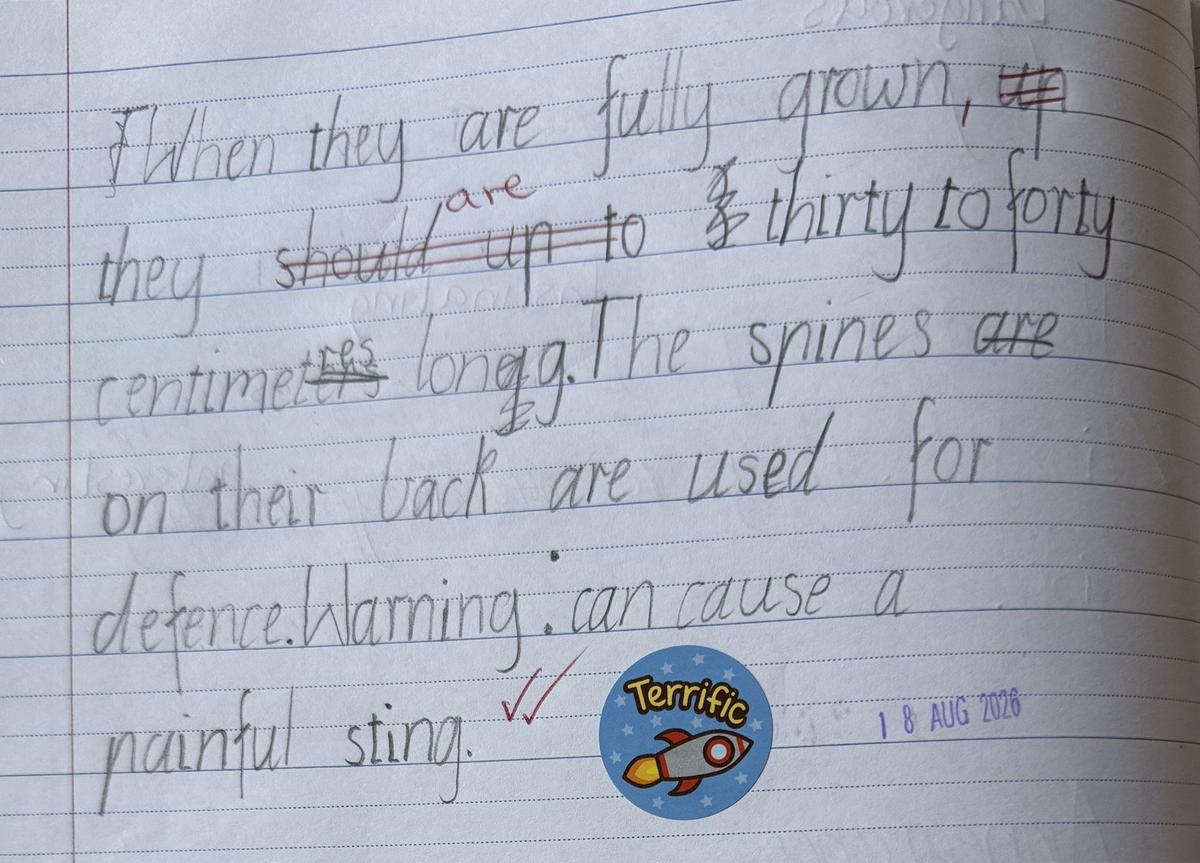 When they are fully grown, up
they should up to are thirty to forty
centimetres long. The spines are
on their back are used for
defence. Warning: can cause a
painful sting.
Terrific
18 AUG 2026